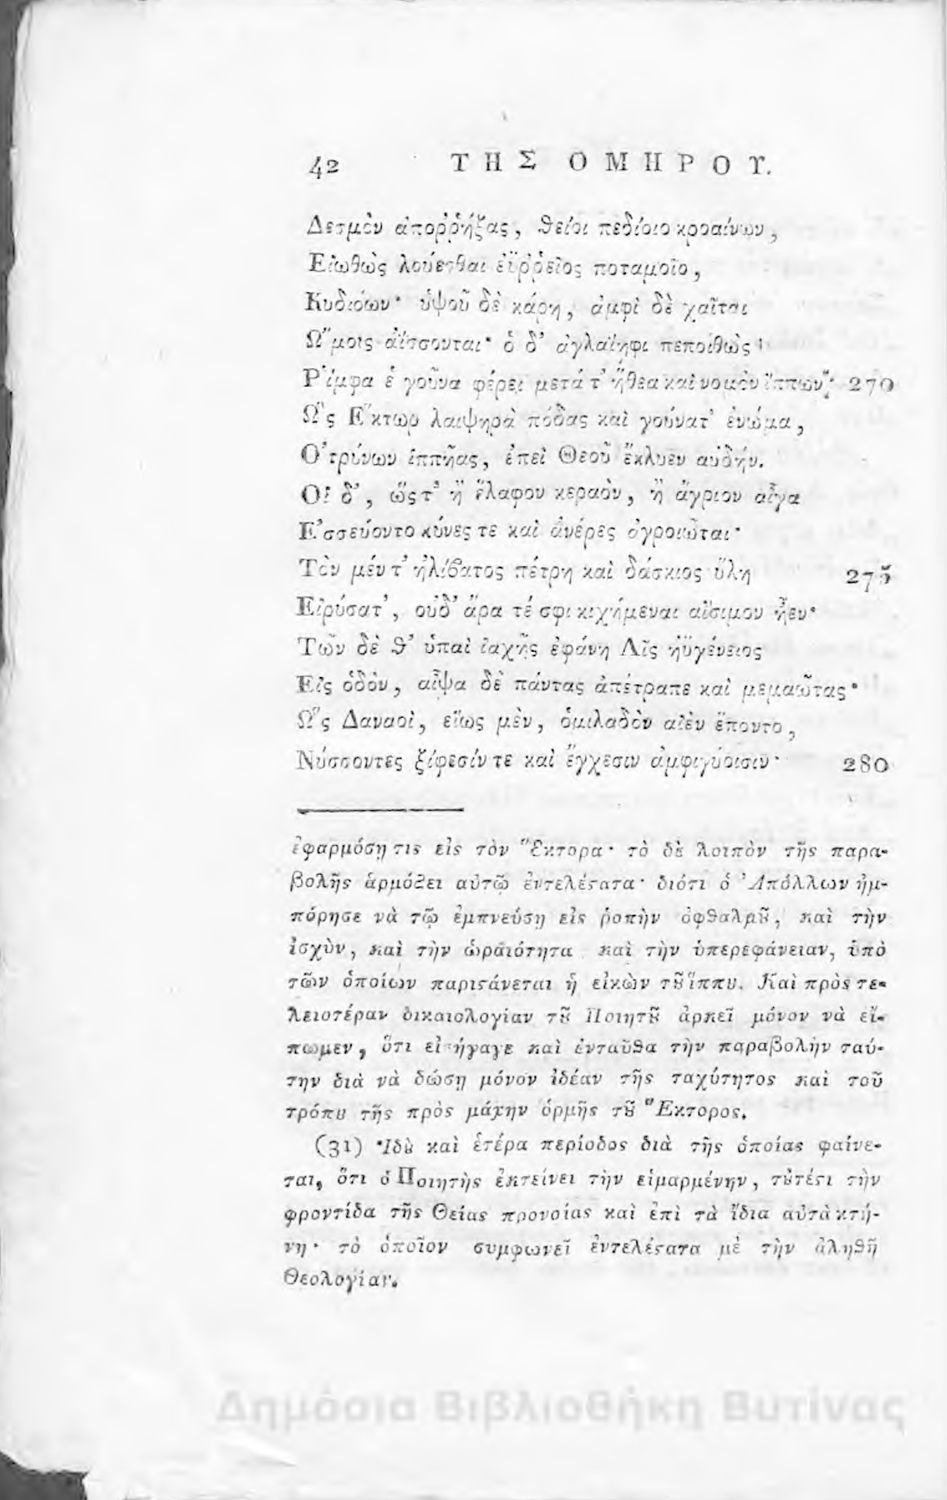 42 ΤΗΣ ΟΜΗΡΟΥ.
Δεσμὸν ἀποῤῥήξας, θείοι πεδίοιο κροαίνων,
Εἰωθὼς λούεσθαι ἐϋῤῥεῖος ποταμοῖο,
Κυδιόων· ὑψοῦ δὲ κάρη, ἀμφὶ δὲ χαῖται
Ὤμοις ἀΐσσονται· ὁ δ' ἀγλαΐηφι πεποιθὼς
Ῥίμφα ἑ γοῦνα φέρει μετά τ' ἤθεα καὶ νομὸν ἵππων· 270
Ὣς Ἕκτωρ λαιψηρὰ πόδας καὶ γούνατ' ἐνώμα,
Ὀτρύνων ἱππῆας, ἐπεὶ Θεοῦ ἔκλυεν αὐδήν.
Οἱ δ', ὥςτ' ἢ ἔλαφον κεραὸν, ἢ ἄγριον αἶγα
Ἐσσεύοντο κύνες τε καὶ ἀνέρες ἀγροιῶται·
Τὸν μέν τ' ἠλίβατος πέτρη καὶ δάσκιος ὕλη 275
Εἰρύσατ', οὐδ' ἄρα τέ σφι κιχήμεναι αἴσιμον ἦεν·
Τῶν δέ θ' ὑπαὶ ἰαχῆς ἐφάνη Λῖς ἠϋγένειος
Εἰς ὁδὸν, αἶψα δὲ πάντας ἀπέτραπε καὶ μεμαῶτας·
Ὣς Δαναοὶ, εἵως μὲν, ὁμιλαδὸν αἰὲν ἕποντο,
Νύσσοντες ξίφεσίν τε καὶ ἔγχεσιν ἀμφιγύοισιν· 280
ἐφαρμόσῃ τις εἰς τὸν Ἕκτορα· τὸ δὲ λοιπὸν τῆς παρα-
βολῆς ἁρμόζει αὐτῷ ἐντελέϛατα· διότι ὁ Ἀπόλλων ἠμ-
πόρησε νὰ τῷ ἐμπνεύσῃ εἰς ῥοπὴν ὀφθαλμȣ͂, καὶ τὴν
ἰσχὺν, καὶ τὴν ὡραιότητα καὶ τὴν ὑπερεφάνειαν, ὑπὸ
τῶν ὁποίων παριϛάνεται ἡ εἰκὼν τȣ͂ ἵππȣ. Καὶ πρὸς τε-
λειοτέραν δικαιολογίαν τȣ͂ Ποιητȣ͂ ἀρκεῖ μόνον νὰ εἴ-
πωμεν, ὅτι εἰσήγαγε καὶ ἐνταῦθα τὴν παραβολὴν ταύ-
την διὰ νὰ δώσῃ μόνον ἰδέαν τῆς ταχύτητος καὶ τοῦ
τρόπȣ τῆς πρὸς μάχην ὁρμῆς τȣ͂ Ἕκτορος.
(31) Ἰδȣ̀ καὶ ἑτέρα περίοδος διὰ τῆς ὁποίας φαίνε-
ται, ὅτι ὁ Ποιητὴς ἐκτείνει τὴν εἱμαρμένην, τȣτέϛι τὴν
φροντίδα τῆς Θείας προνοίας καὶ ἐπὶ τὰ ἴδια αὐτὰ κτή-
νη· τὸ ὁποῖον συμφωνεῖ ἐντελέϛατα μὲ τὴν ἀληθῆ
Θεολογίαν.
Δημόσια Βιβλιοθήκη Βυτίνας